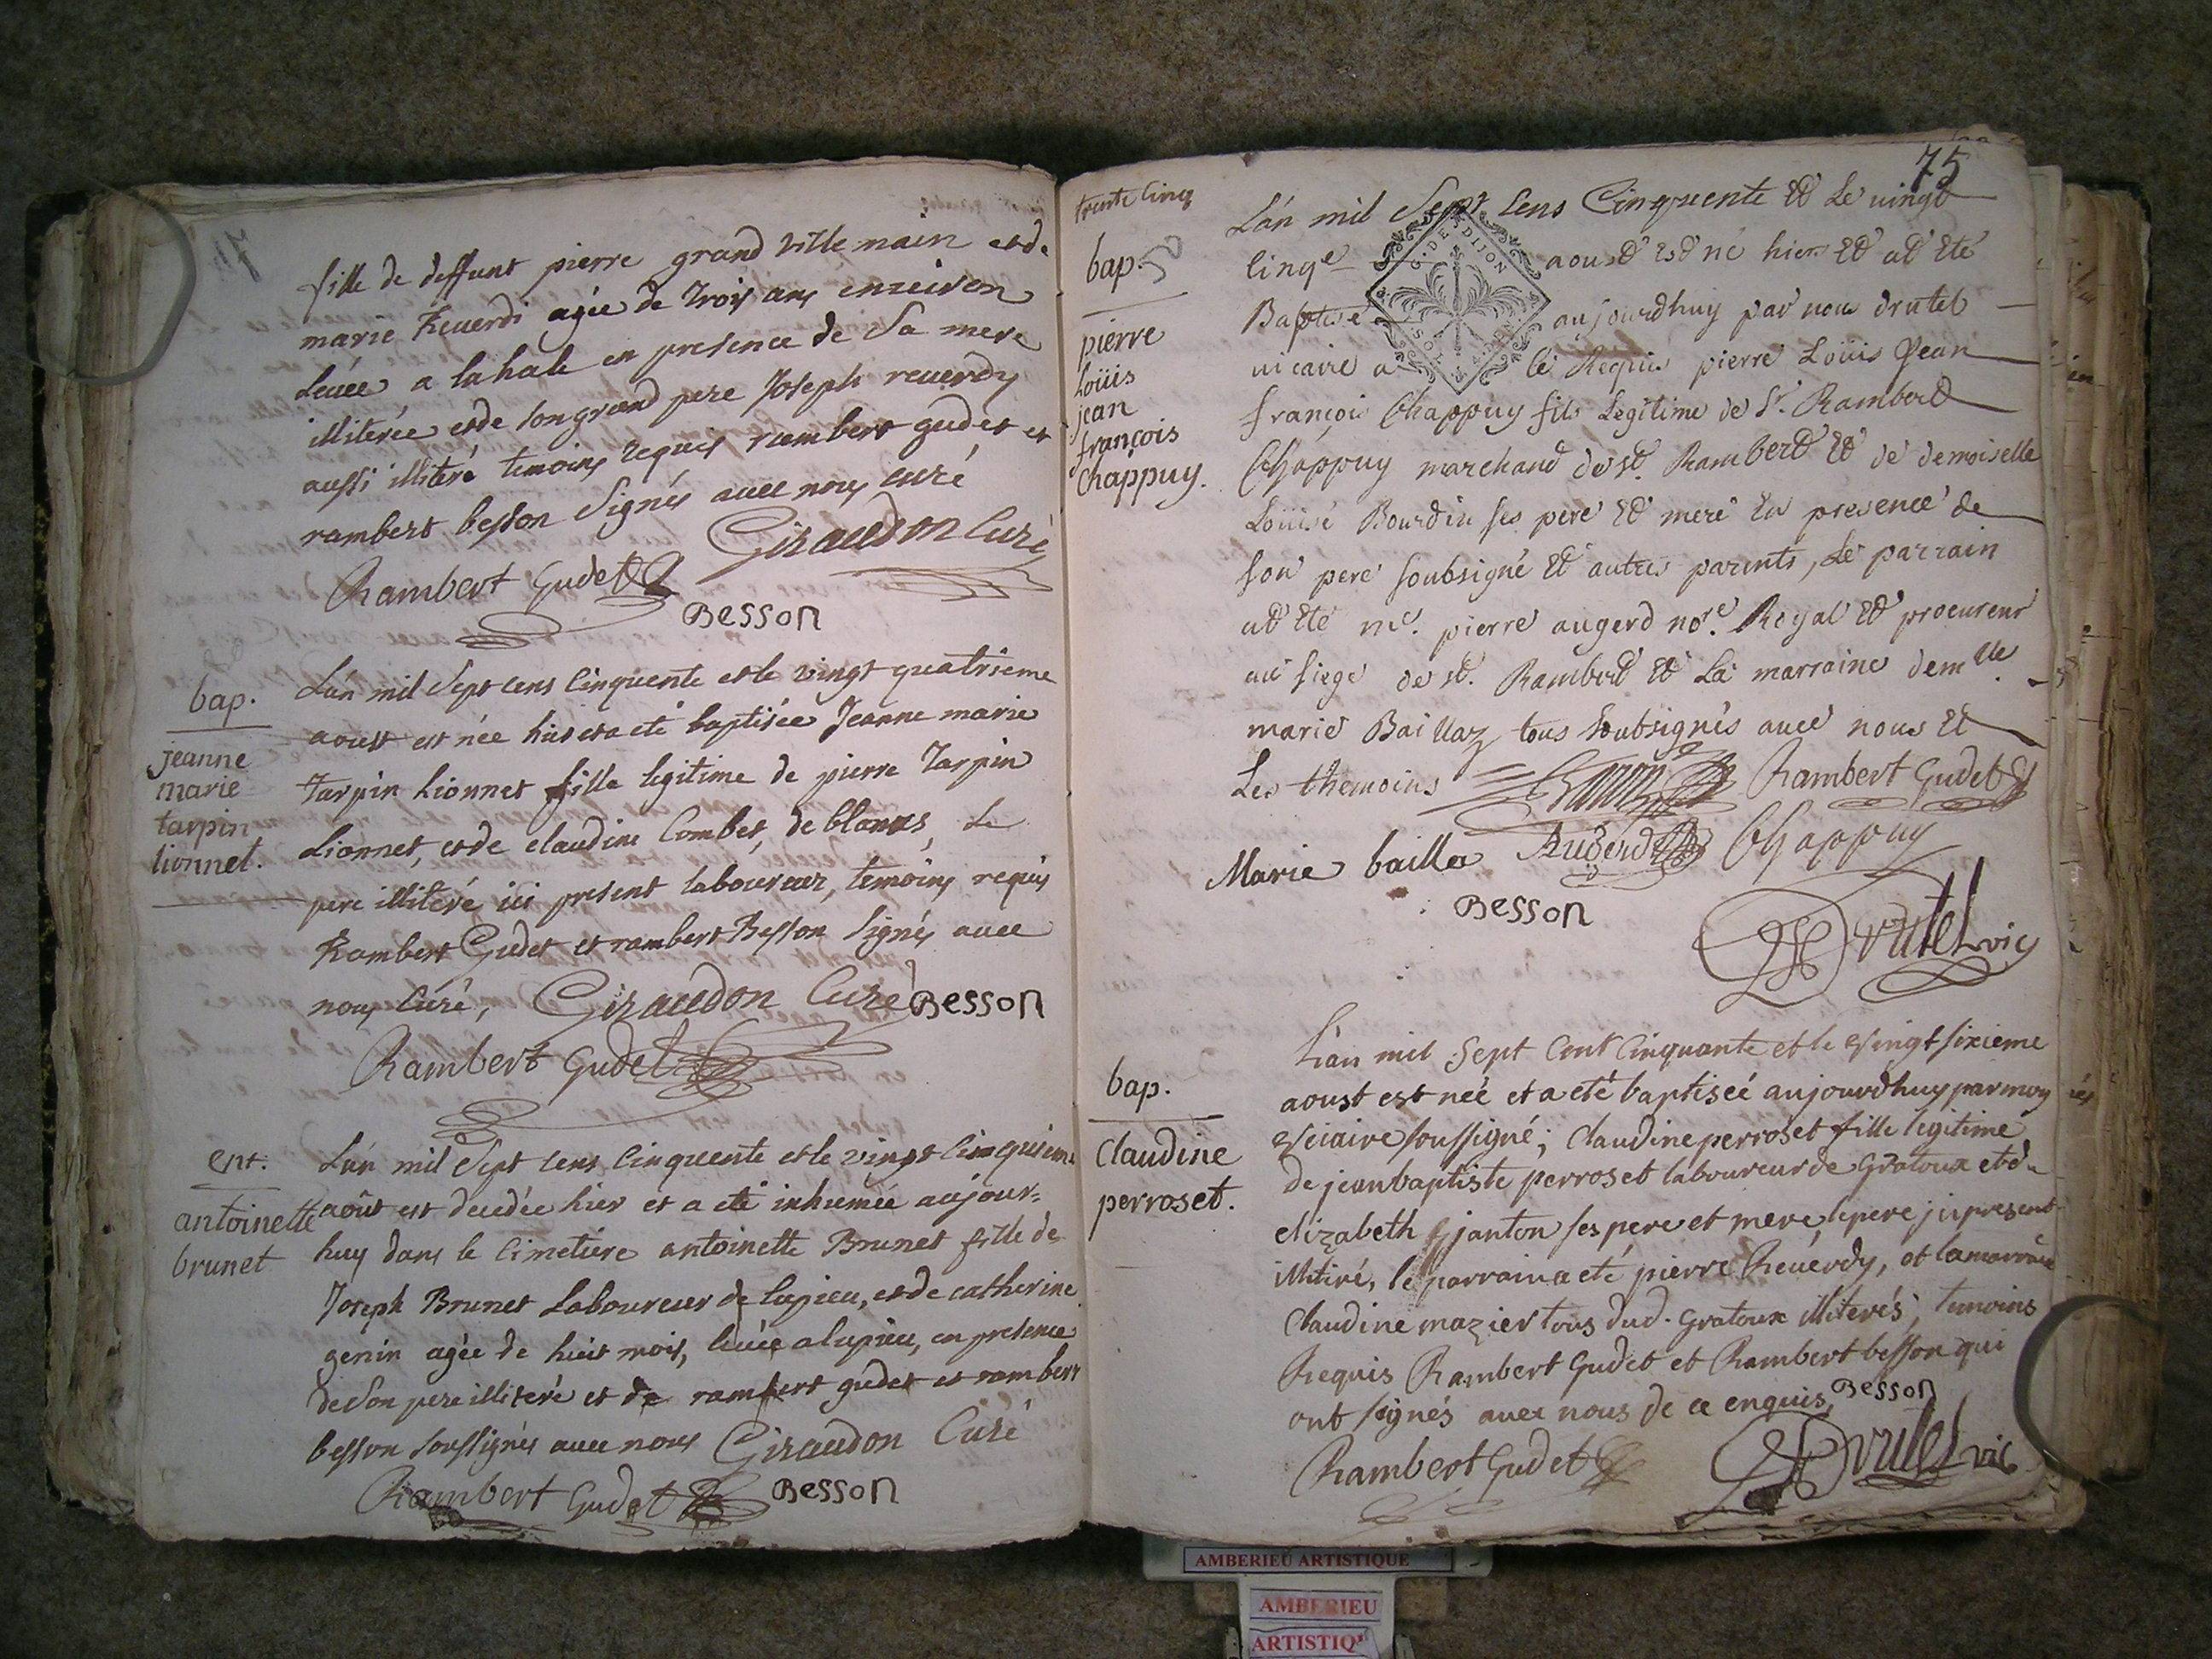 fille de deffunt pierre grand ville main et de
marie Reverdi agée de trois ans enviren
levée a la hale en presence de Sa mere
illiterée et de son grand pere Joseph reverdy
aussi illiteré temoins requis rambert gudet et
rambert besson Signés avec nous curé
Giraudon Curé
Rambert Gudet
Besson
bap.
jeanne
marie
tarpin
lionnet.
L'an mil Sept cens Cinquente et le vingt quatrieme
aoust est née hier et a eté baptisée Jeanne marie
Tarpin Lionnet fille legitime de pierre Tarpin
Lionnet, et de claudine Combet, de blanas, Le
pere illiteré ici present laboureur, temoins requis
Rambert Gudet et rambert Besson Signés avec
nous Curé, Giraudon Curé Besson
Rambert Gudet
ent.
antoinette
brunet
L'an mil Sept cens Cinquente et le vingt Cinquieme
août est decedée hier et a eté inhumée aujour=
huy dans le Cimetiere antoinette Brunet fille de
Joseph Brunet Laboureur de lupieu, et de catherine
genin agée de huit mois, levée a lupieu, en presence
de Son pere illiteré et de rambert gudet et rambert
besson soussignés avec nous Giraudon Curé
Rambert Gudet Besson
75
trente Cinq
bap.
pierre
Loüis
jean
françois
Chappuy.
L'an mil Sept Cens Cinquente Et Le vingt
Cinqe aoust Est né hier Et at Eté
G. DE DIJON
Baptisé aujourdhuy par nous drutel
vicaire a ce Requis pierre Loüis Jean
françois Chappuy fils Legitime de Sr. Rambert
Chappuy marchand de st. Rambert Et de demoiselle
Loüise Bourdin ses pere Et mere En presence de
son pere soubsigné Et autres parents, Le parrain
at Eté me. pierre augerd nore. Royal Et procureur
au siege de st. Rambert Et La marraine demlle.
marie Baillaz tous soubsignés avec nous Et
Les themoins Rambert Gudet
Marie bailla Augerd Chappuy
Besson
Drutel vic
bap.
Claudine
perroset.
L'an mil Sept Cent Cinquante et le vingt sixieme
aoust est née et a eté baptiseé aujourdhuy par moy
viciaire soussigné; Claudine perroset fille legitime
de jean baptiste perroset laboureur de Gratoux et de
elizabeth janton ses pere et mere, le pere ji present
illitiré, le parrain a eté pierre Reverdy, et la marraine
Claudine mazier tous dud. Gratoux illiterés, temoins
Requis Rambert Gudet et Rambert besson qui
ont signés avec nous de ce enquis, Besson
Rambert Gudet Drutel vic
AMBERIEU ARTISTIQUE
AMBERIEU
ARTISTIQ